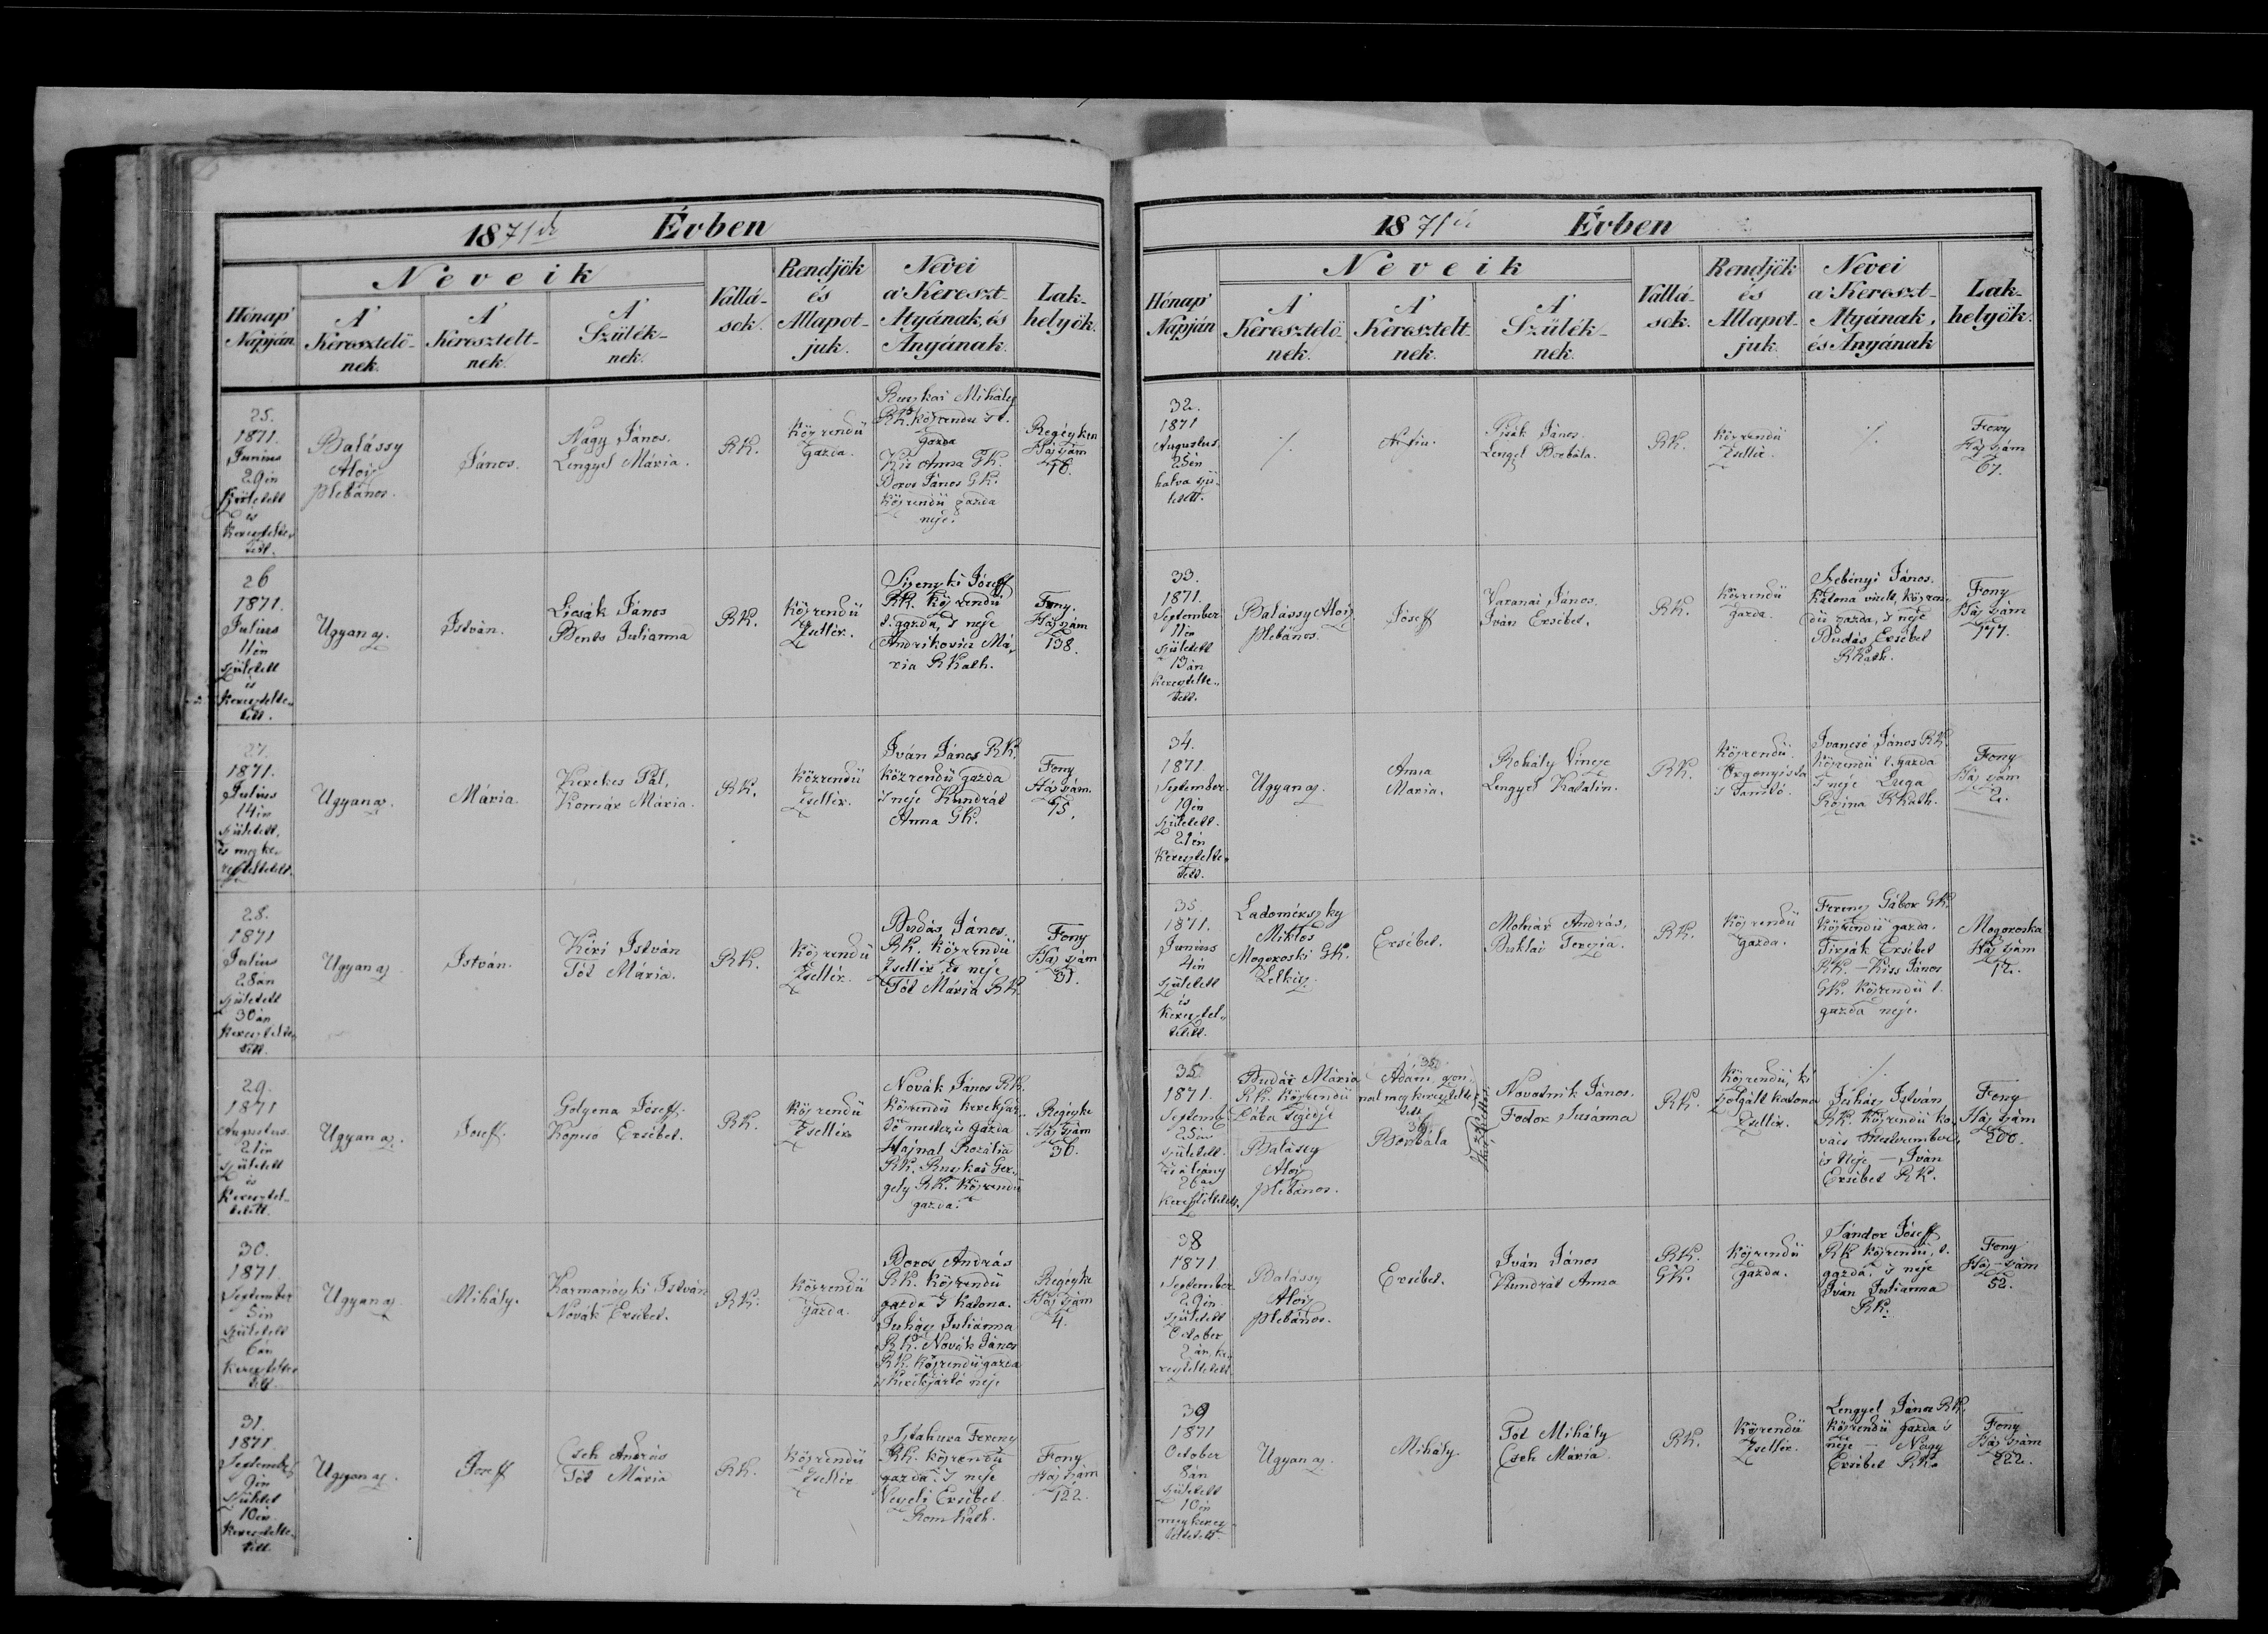 1871ik Évben
Neveik
Hónap' Napján
A' Keresztelő-nek.
A' Keresztelt-nek.
A' Szülék-nek.
Vallá-sok.
Rendjök és Állapot-juk.
Nevei a' Kereszt-Atyának, és Anyának.
Lak-helyök.
25.
1871.
Junius
29én
Született
és
Keresztelte-
tett.
Balássy
Aloiz
Plebános.
János.
Nagy János.
Lengyel Mária.
RK.
Közrendü
gazda.
Ruszkai Mihály
RK. közrendü
gazda
Kis Anna GK.
Boros János GK.
Közrendü gazda
neje.
Regéczken
Ház szám
26
1871.
Julius
11én
született
és
Keresztelte-
tett.
Ugyan az.
István.
Licsák János
Bents Julianna
RK.
Közrendü
Zsellér.
József
RK. közrendü
t. gazda, s neje
Andrikovics Má-
ria RKath.
Fony.
Ház szám
138.
27.
1871.
Julius
14én
született,
és megke-
reszteltetett.
Ugyan az.
Mária.
Kerekes Pál,
Komár Mária.
RK.
Közrendü
Zsellér.
Iván János RK.
közrendü gazda
s neje Kundrát
Anna GK.
Fony
Ház szám.
28.
1871
Julius
28án
született
30án
Keresztelte-
tett.
Ugyan az.
István.
Kéri István
Tót Maria.
RK.
Közrendü
Zsellér.
Budás János.
RK. közrendü
Zsellér és neje
Tót Mária RK
Fony
Ház szám
31.
29.
1871
Augustus
21én
született
és
Keresztel-
tetett.
Ugyan az.
Josef.
Golyena Józseff.
Kopcsó Ersébet.
RK.
Közrendü
Zsellér
Novák János RK.
közrendü kerékjár-
tó mester, és gazda
Hajnal Rozália
RK. Ruszkai Ger-
gely RK. közrendü
gazda.
Regéczke
Ház szám
36.
30.
1871.
September
5én
született
6án
Keresztelte-
tett.
Ugyan az
Mihály.
Karmanóczki István
Novák Ersébet.
RK.
Közrendü
gazda.
Boros András
RK. közrendü
gazda s katona.
Juház Juliánna
RK. Novák János
RK. közrendü gazda
s kerékjártó neje
Regéczke
Ház szám
4.
31.
1871.
September
9én
Születet
10én
Keresztelte-
tett.
Ugyan az.
Joseff
Cseh András
Tót Mária
RK.
Közrendü
Zsellér
Sztahura Ferencz
RK. közrendü
gazda s neje
Ersébet
Rom Kath.
Fony
Ház szám
122.
1871ik Évben
Neveik
Hónap' Napján
A' Keresztelő-nek.
A' Keresztelt-nek.
A' Szülék-nek.
Vallá-sok.
Rendjök és Állapot-juk.
Nevei a' Kereszt-Atyának, és Anyának
Lak-helyök.
32.
1871
Augustus.
25én
halva szü-
letett.
./.
János.
Lengyel Borbála.
RK.
Közrendü
Zsellér.
./.
Fony
Ház szám
67.
33.
1871.
September
11én
született
13án
Keresztelte-
tett.
Balássy Aloiz
Plebános.
Jóseff
Varanai János.
Iván Ersébet.
RK.
Közrendü
gazda.
Szebényi János.
Katona viselt, közren-
dü gazda, s neje
Budás Ersébet
RKath.
Fony
Ház szám
177.
34.
1871.
September
19én
született.
21én
Keresztelte-
tett.
Ugyan az.
Anna
Maria.
Rohály Vincze
Lengyel Katalin.
RK.
Közrendü
Orgonyista
s Tanitó.
Ivancsó János RK.
közrendü t. gazda
s neje
Rozina RKath.
Fony
Ház szám
2.
35.
1871.
Junius
4én
született
és
Keresztel-
tetett.
Ladomérszky
Miklós
Mogoroski GK.
Lelkész.
Ersébet.
Molnár András,
Buktai Terézia.
RK.
Közrendü
gazda.
Ferencz Gábor GK.
közrendü gazda.
Tirják Ersébet
RK. - Kiss János
GK. közrendü t.
gazda neje.
Mogoroska
Ház szám
12.
1871.
Septemb.
25én
született.
és a leány
26án
Kereszteltetett.
Budai Mária
RK. közrendü
Bába
Balássy
Aloiz
Plebános.
Ádám, azon-
nal megkeresztelte-
tett
Borbála
Novotnik János.
Fodor Susánna
RK.
Közrendü, ki
szolgált katona
Zsellér.
./.
Juház István,
RK. közrendü ko-
vács Mesterember,
és Neje - Iván
Ersébet RK.
Fony
Ház szám
200.
38
1871
September
29én
született
October
2án ke-
reszteltetett
Balássy
Aloiz
Plebános.
Ersébet.
Iván János
Kundrát Anna
RK.
GK.
Közrendü
gazda.
Sándor Jóseff
RK közrendü, t.
gazda. s neje
Iván Julianna
RK.
Fony
Ház-szám
52.
39
1871
October
8án
született
10én
megkeresz-
teltetett.
Ugyan az.
Mihály.
Tót Mihály
Cseh Mária
RK.
Közrendü
Zsellér.
Lengyel János RK.
közrendü gazda s
neje - Nagy
Ersébet RK.
Fony
Ház szám
222.